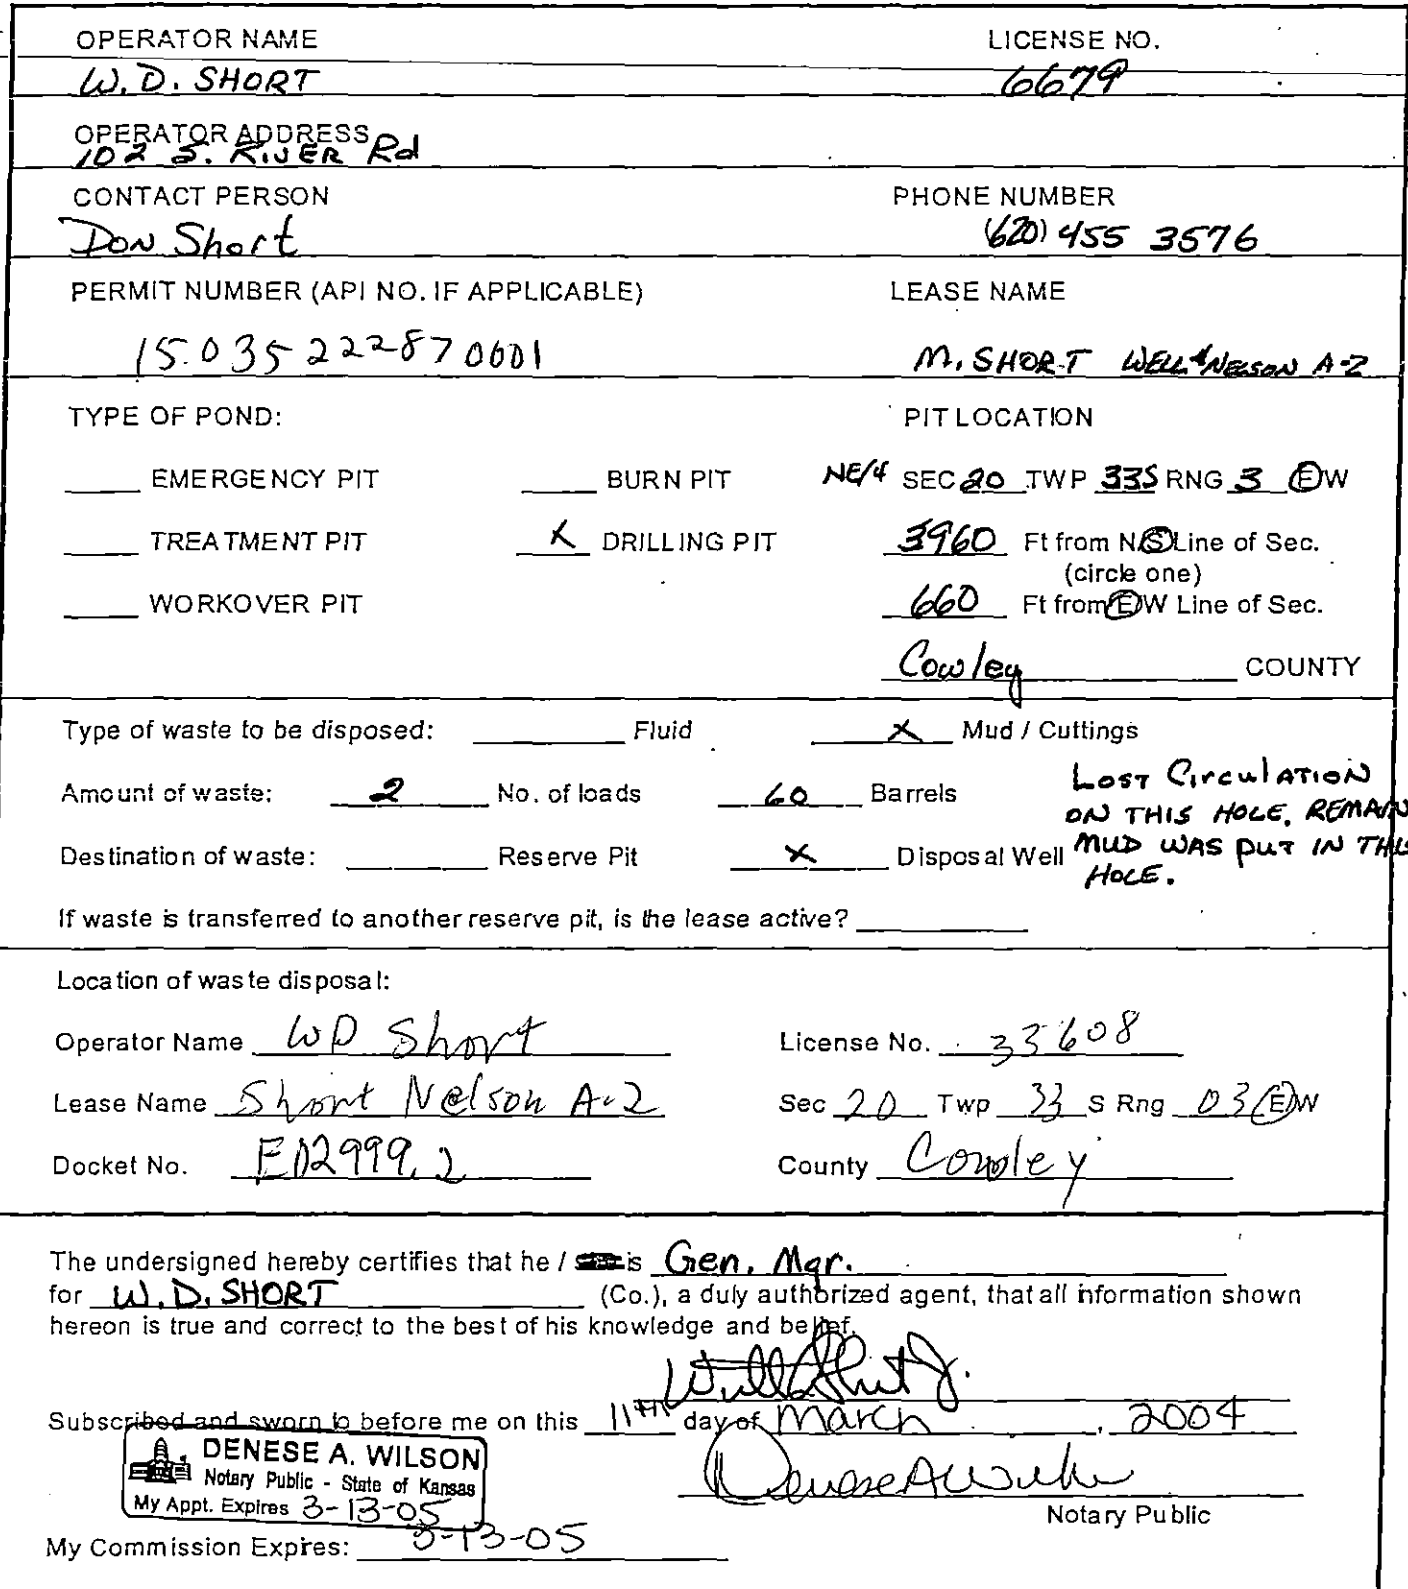 OPERATOR NAME LICENSE NO.
W. D. SHORT 6679
OPERATOR ADDRESS
102 S. RIVER Rd
CONTACT PERSON PHONE NUMBER
Don Short (620) 455 3576
PERMIT NUMBER (API NO. IF APPLICABLE) LEASE NAME
15.035 222870001 M. SHORT WELL # NELSON A-2
TYPE OF POND: PIT LOCATION
____ EMERGENCY PIT ____ BURN PIT NE/4 SEC 20 TWP 33S RNG 3 E W
____ TREATMENT PIT X DRILLING PIT 3960 Ft from N/S Line of Sec.
(circle one)
____ WORKOVER PIT 660 Ft from E/W Line of Sec.
Cowley COUNTY
Type of waste to be disposed: ____ Fluid X Mud / Cuttings
Amount of waste: 2 No. of loads 60 Barrels
LOST CirculATION
ON THIS HOLE, REMAIN
Destination of waste: ____ Reserve Pit X Disposal Well
MUD WAS PUT IN THIS
HOLE.
If waste is transferred to another reserve pit, is the lease active? ____
Location of waste disposal:
Operator Name WD Short License No. 33608
Lease Name Short Nelson A-2 Sec 20 Twp 33 S Rng 03 E/W
Docket No. ED2999.2 County Cowley
The undersigned hereby certifies that he / is Gen. Mgr.
for W.D. SHORT (Co.), a duly authorized agent, that all information shown
hereon is true and correct to the best of his knowledge and belief.
Subscribed and sworn to before me on this 11th day of March, 2004
DENESE A. WILSON
Notary Public - State of Kansas
My Appt. Expires 3-13-05
Denese A Wilson
Notary Public
My Commission Expires: 3-13-05